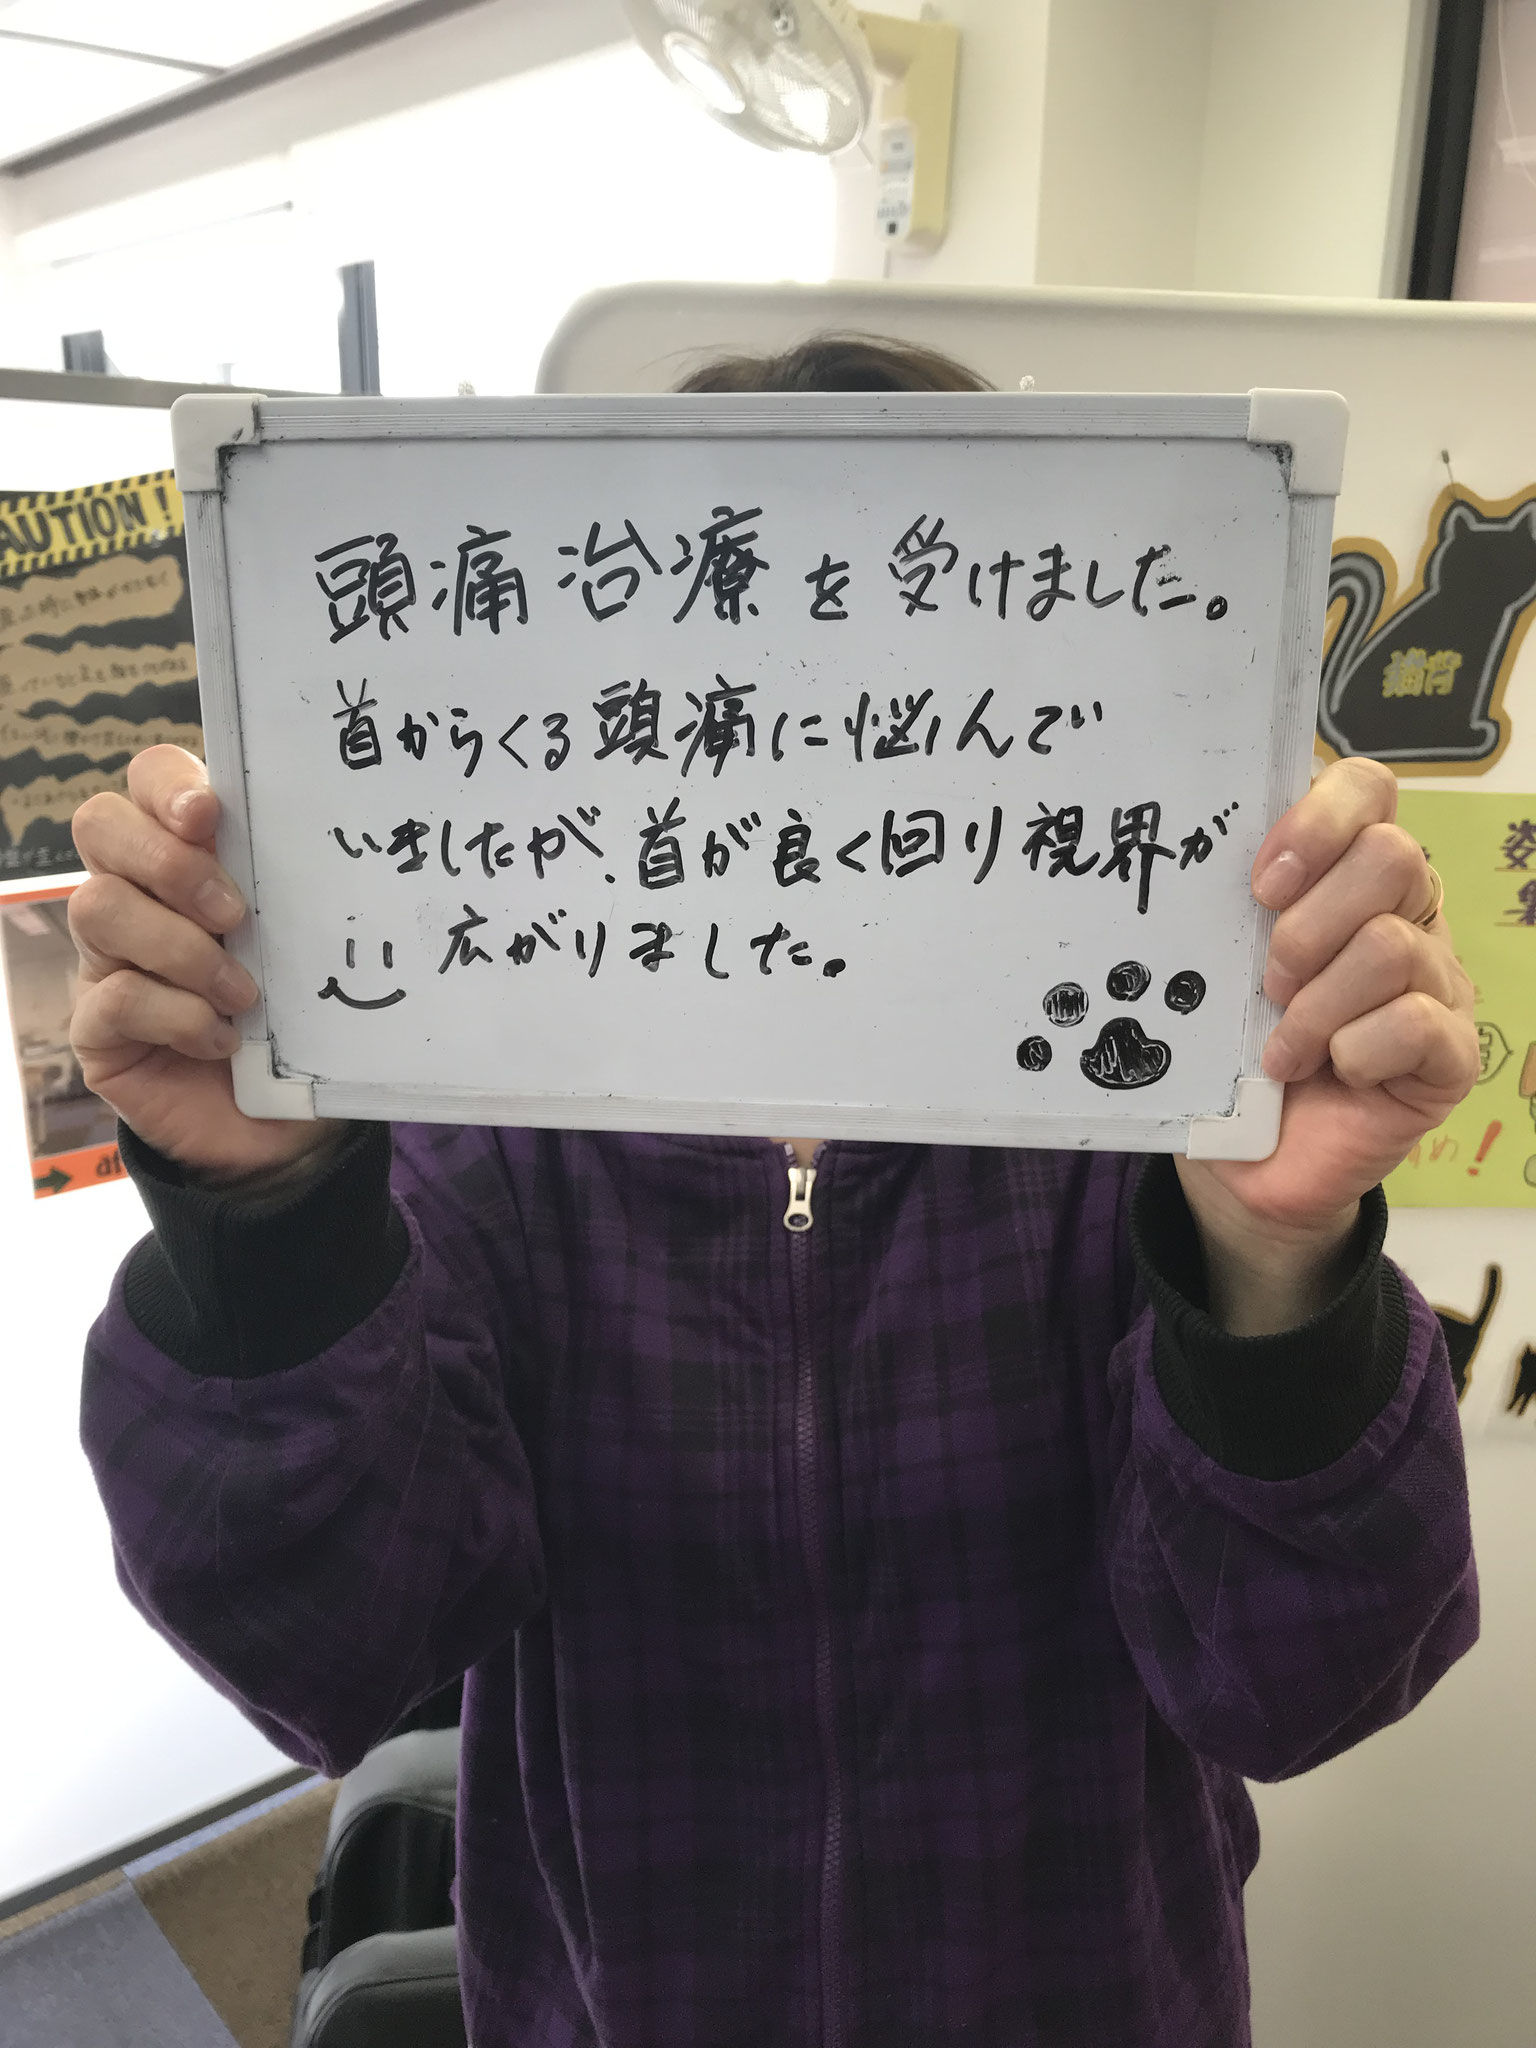 頭痛治療を受けました。
首からくる頭痛に悩んで
いましたが、首が良く回り視界が
広がりました。
CAUTION!
猫背
姿